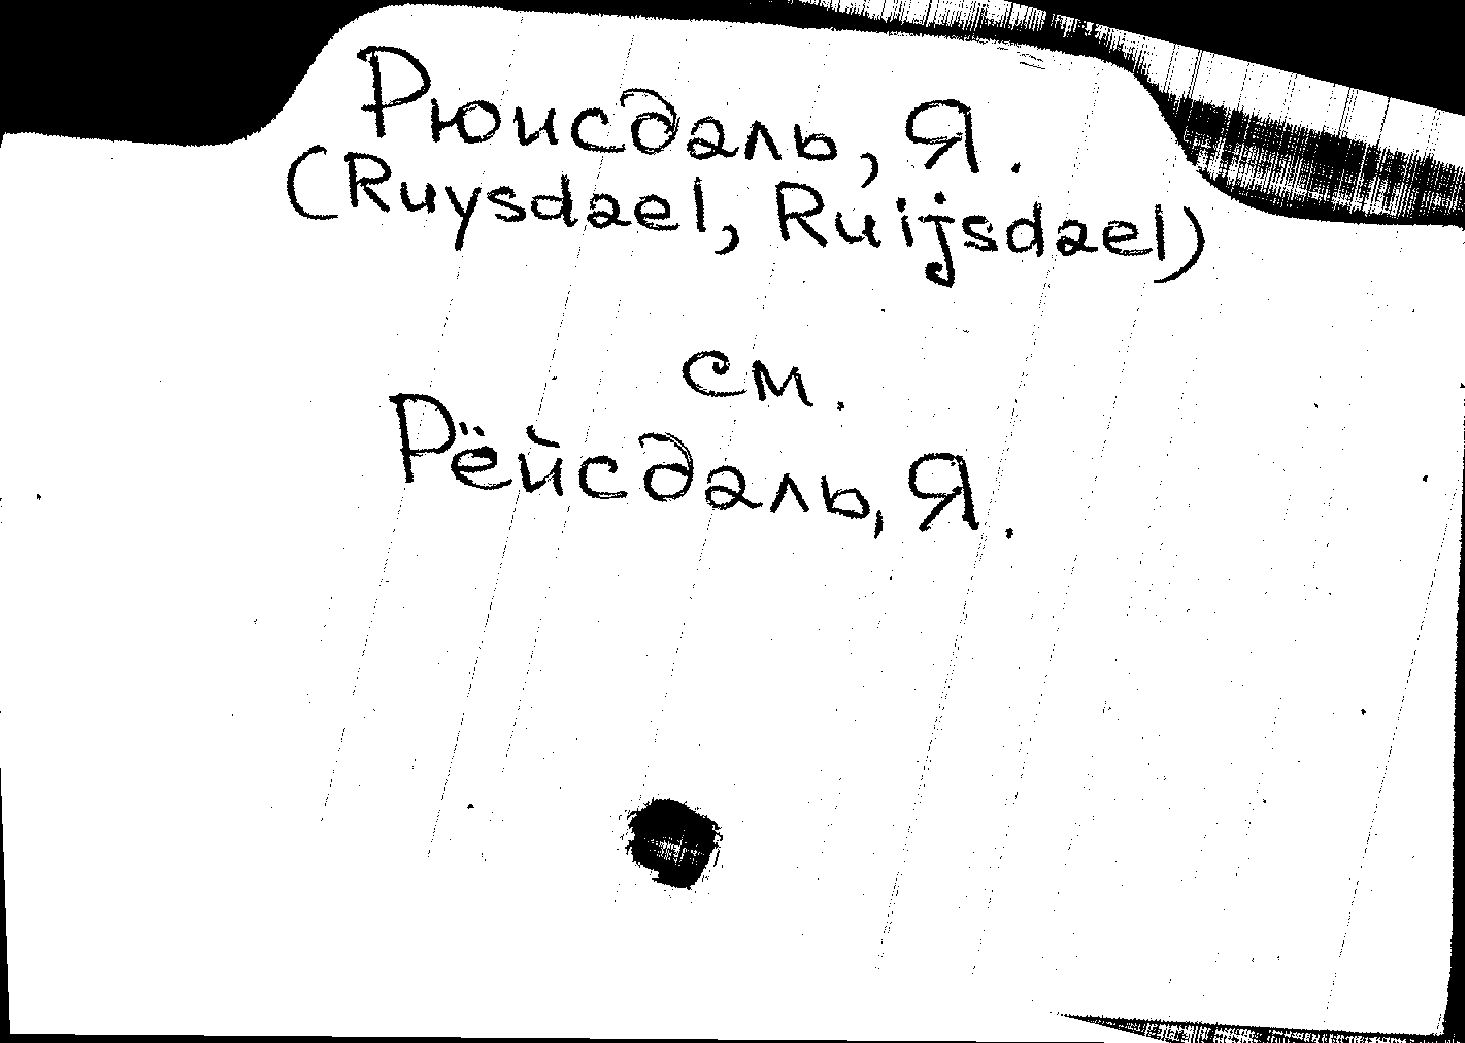 Рюисдаль, Я.
(Ruysdael, Ruijsdael)
см.
Рёйсдаль, Я.